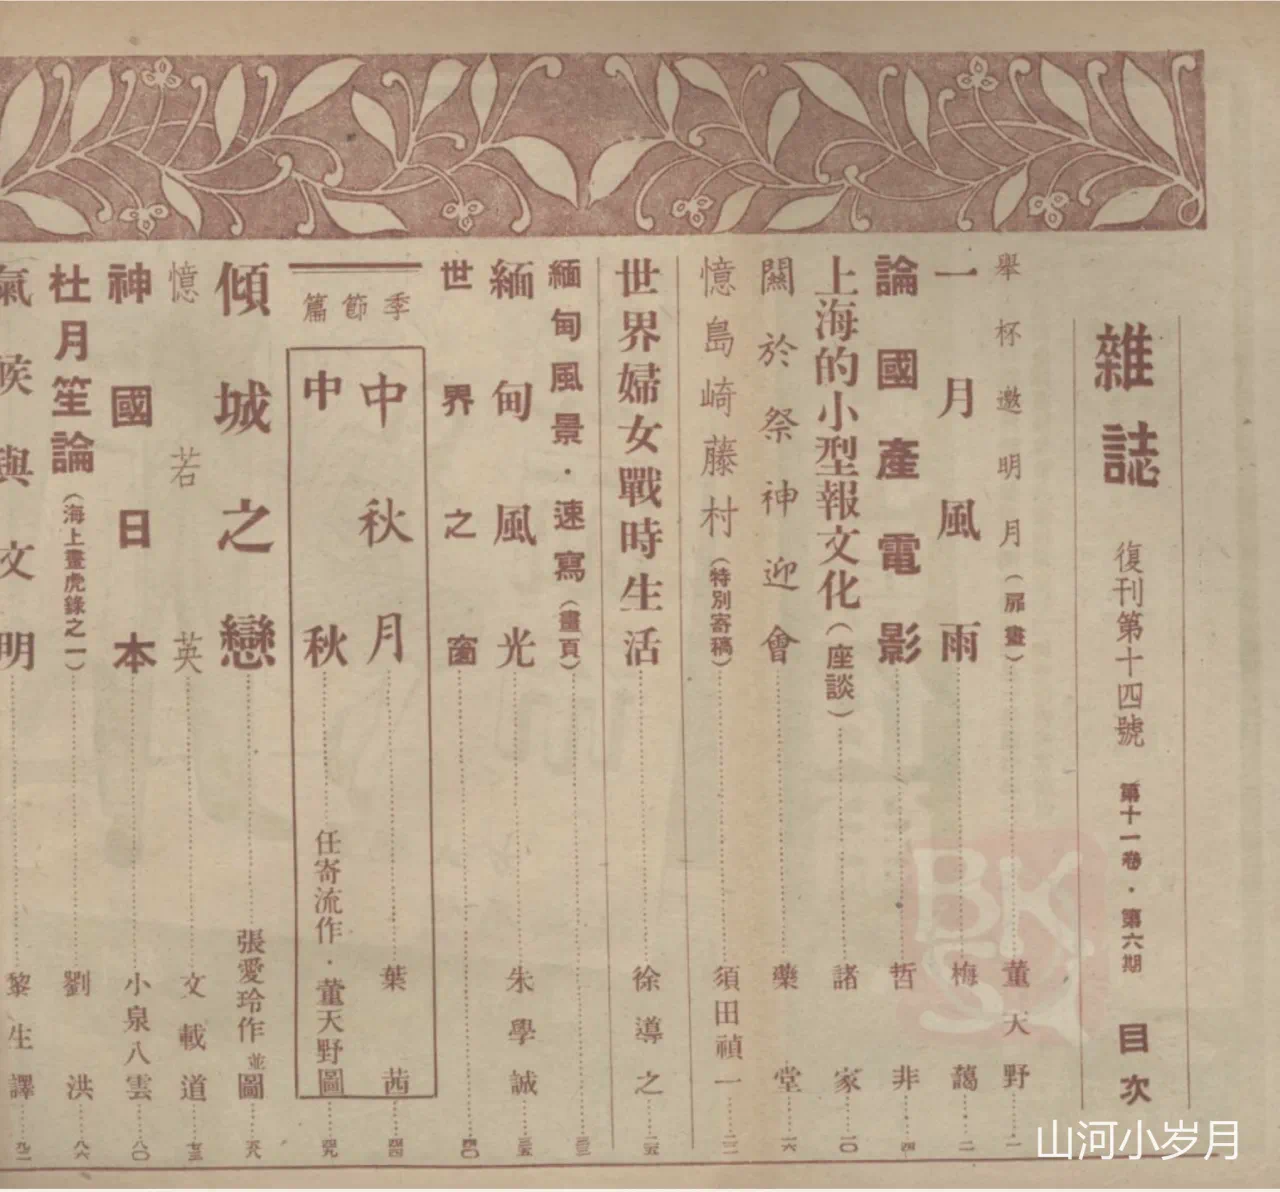 雜誌 復刊第十四號 第十一卷·第六期 目次
舉杯邀明月（扉畫）……董天野……一
一月風雨……梅藹……二
論國產電影……哲非……四
上海的小型報文化（座談）……諸家……一〇
關於祭神迎會……藥堂……一六
憶島崎藤村（特別寄稿）……須田禎一……二二
世界婦女戰時生活……徐導之……二五
緬甸風景·速寫（畫頁）……三三
緬甸風光……朱學誠……三五
世界之窗……四〇
季節篇
中秋月……葉茜……四四
中秋……任寄流作·董天野圖……四九
傾城之戀……張愛玲作並圖……五八
憶若英……文載道……七三
神國日本……小泉八雲……八〇
杜月笙論（海上畫虎錄之一）……劉洪……八六
氣候與文明……黎生譯……九二
BKSY
山河小岁月